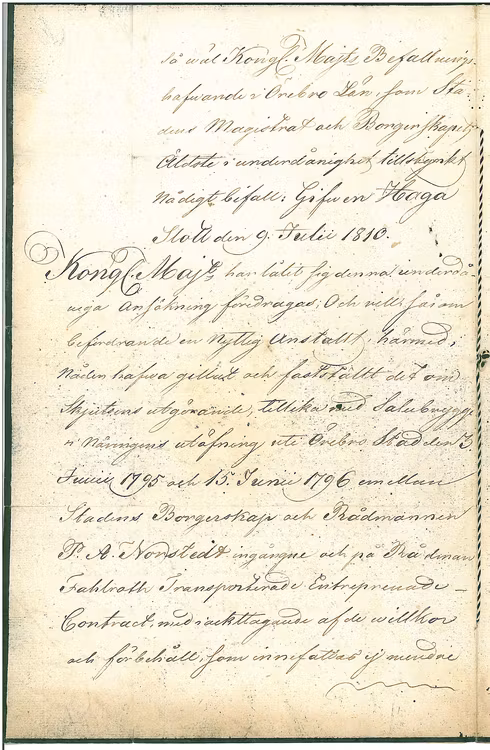 så wäl Kongl. Majts Befallnings-
hafwande i Örebro Län, som Sta-
dens Magistrat och Borgerskapets
Äldste i underdånighet tillstyrkt
Nådigt bifall: Gifwen Haga
Slott den 9. Julii 1810.
Kongl. Majt, har låtit sig denna underdå-
niga Ansökning föredragas; Och vell såsom
befordrande en Nyttig Anstallt, härmed i
Nåden hafwa gillat och fastställt det om
Skjutsens utgörande, tillika med Salubrygge-
ri Näringens utöfning uti Örebro Stad den 3.
Junii 1795 och 15. Junii 1796 emellan
Stadens Borgerskap och Rådmannen
P. A. Norstedt ingångne och på Rådman
Fahlroth Transporterade Entreprenade-
Contract, med iackttagande af de willkor
och förbehåll, som innefattas ej mindre